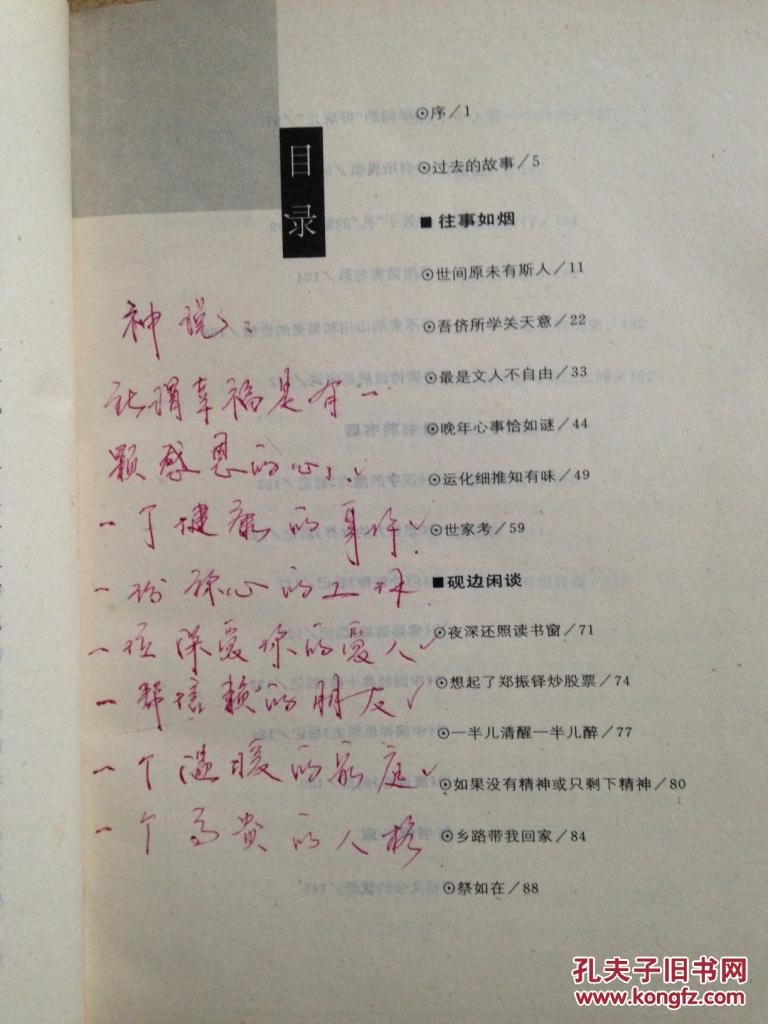 目
录
⊙序/1
⊙过去的故事/5
■往事如烟
⊙世间原未有斯人/11
⊙吾侪所学关天意/22
⊙最是文人不自由/33
⊙晚年心事恰如谜/44
⊙运化细推知有味/49
⊙世家考/59
■砚边闲谈
⊙夜深还照读书窗/71
⊙想起了郑振铎炒股票/74
⊙一半儿清醒一半儿醉/77
⊙如果没有精神或只剩下精神/80
⊙乡路带我回家/84
⊙祭如在/88
神说:
所谓幸福是有一
颗感恩的心,
一个健康的身体
一份称心的工作
一位深爱你的爱人
一帮信赖的朋友
一个温暖的家庭
一个高贵的人格
孔夫子旧书网
www.kongfz.com